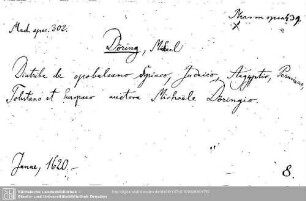 Mat. spec. 302.
Döring, Michael
Diatribe de opobalsamo Syriaco, Judaico, Aegyptio, Peruviano,
Tolutano et Europaeo auctore Michaële Döringio.
Jenae, 1620.-
8.
Sächsische Landesbibliothek -
Staats- und Universitätsbibliothek Dresden